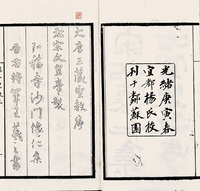 光緒庚寅春
宜都楊氏校
刊于鄰蘇園
大唐三藏聖教序
太宗文皇帝製
弘福寺沙門懷仁集
晉右將軍王羲之書